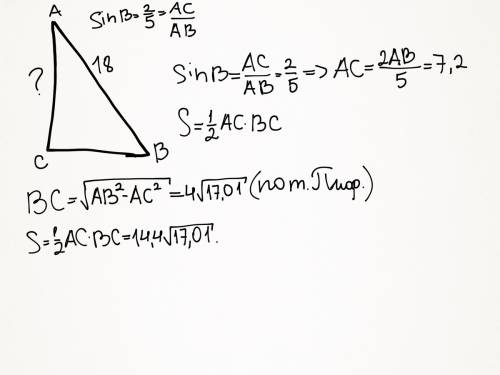 A
SinB=2/5=AC/AB
18
?
SinB=AC/AB=2/5=>AC=2AB/5=7,2
S=1/2AC·BC
C
B
BC=√AB²-AC²=4√17,01 (по т. Пифр.)
S=1/2AC·BC=14,4√17,01.